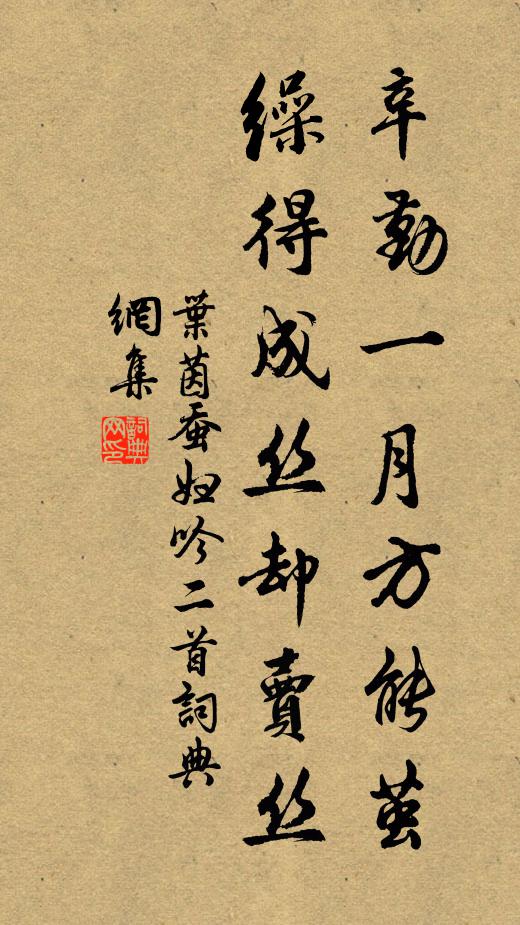 辛勤一月方能茧
缲得成丝却賣丝
葉茵蚕妇吟二首詞典
網集
詞典网印